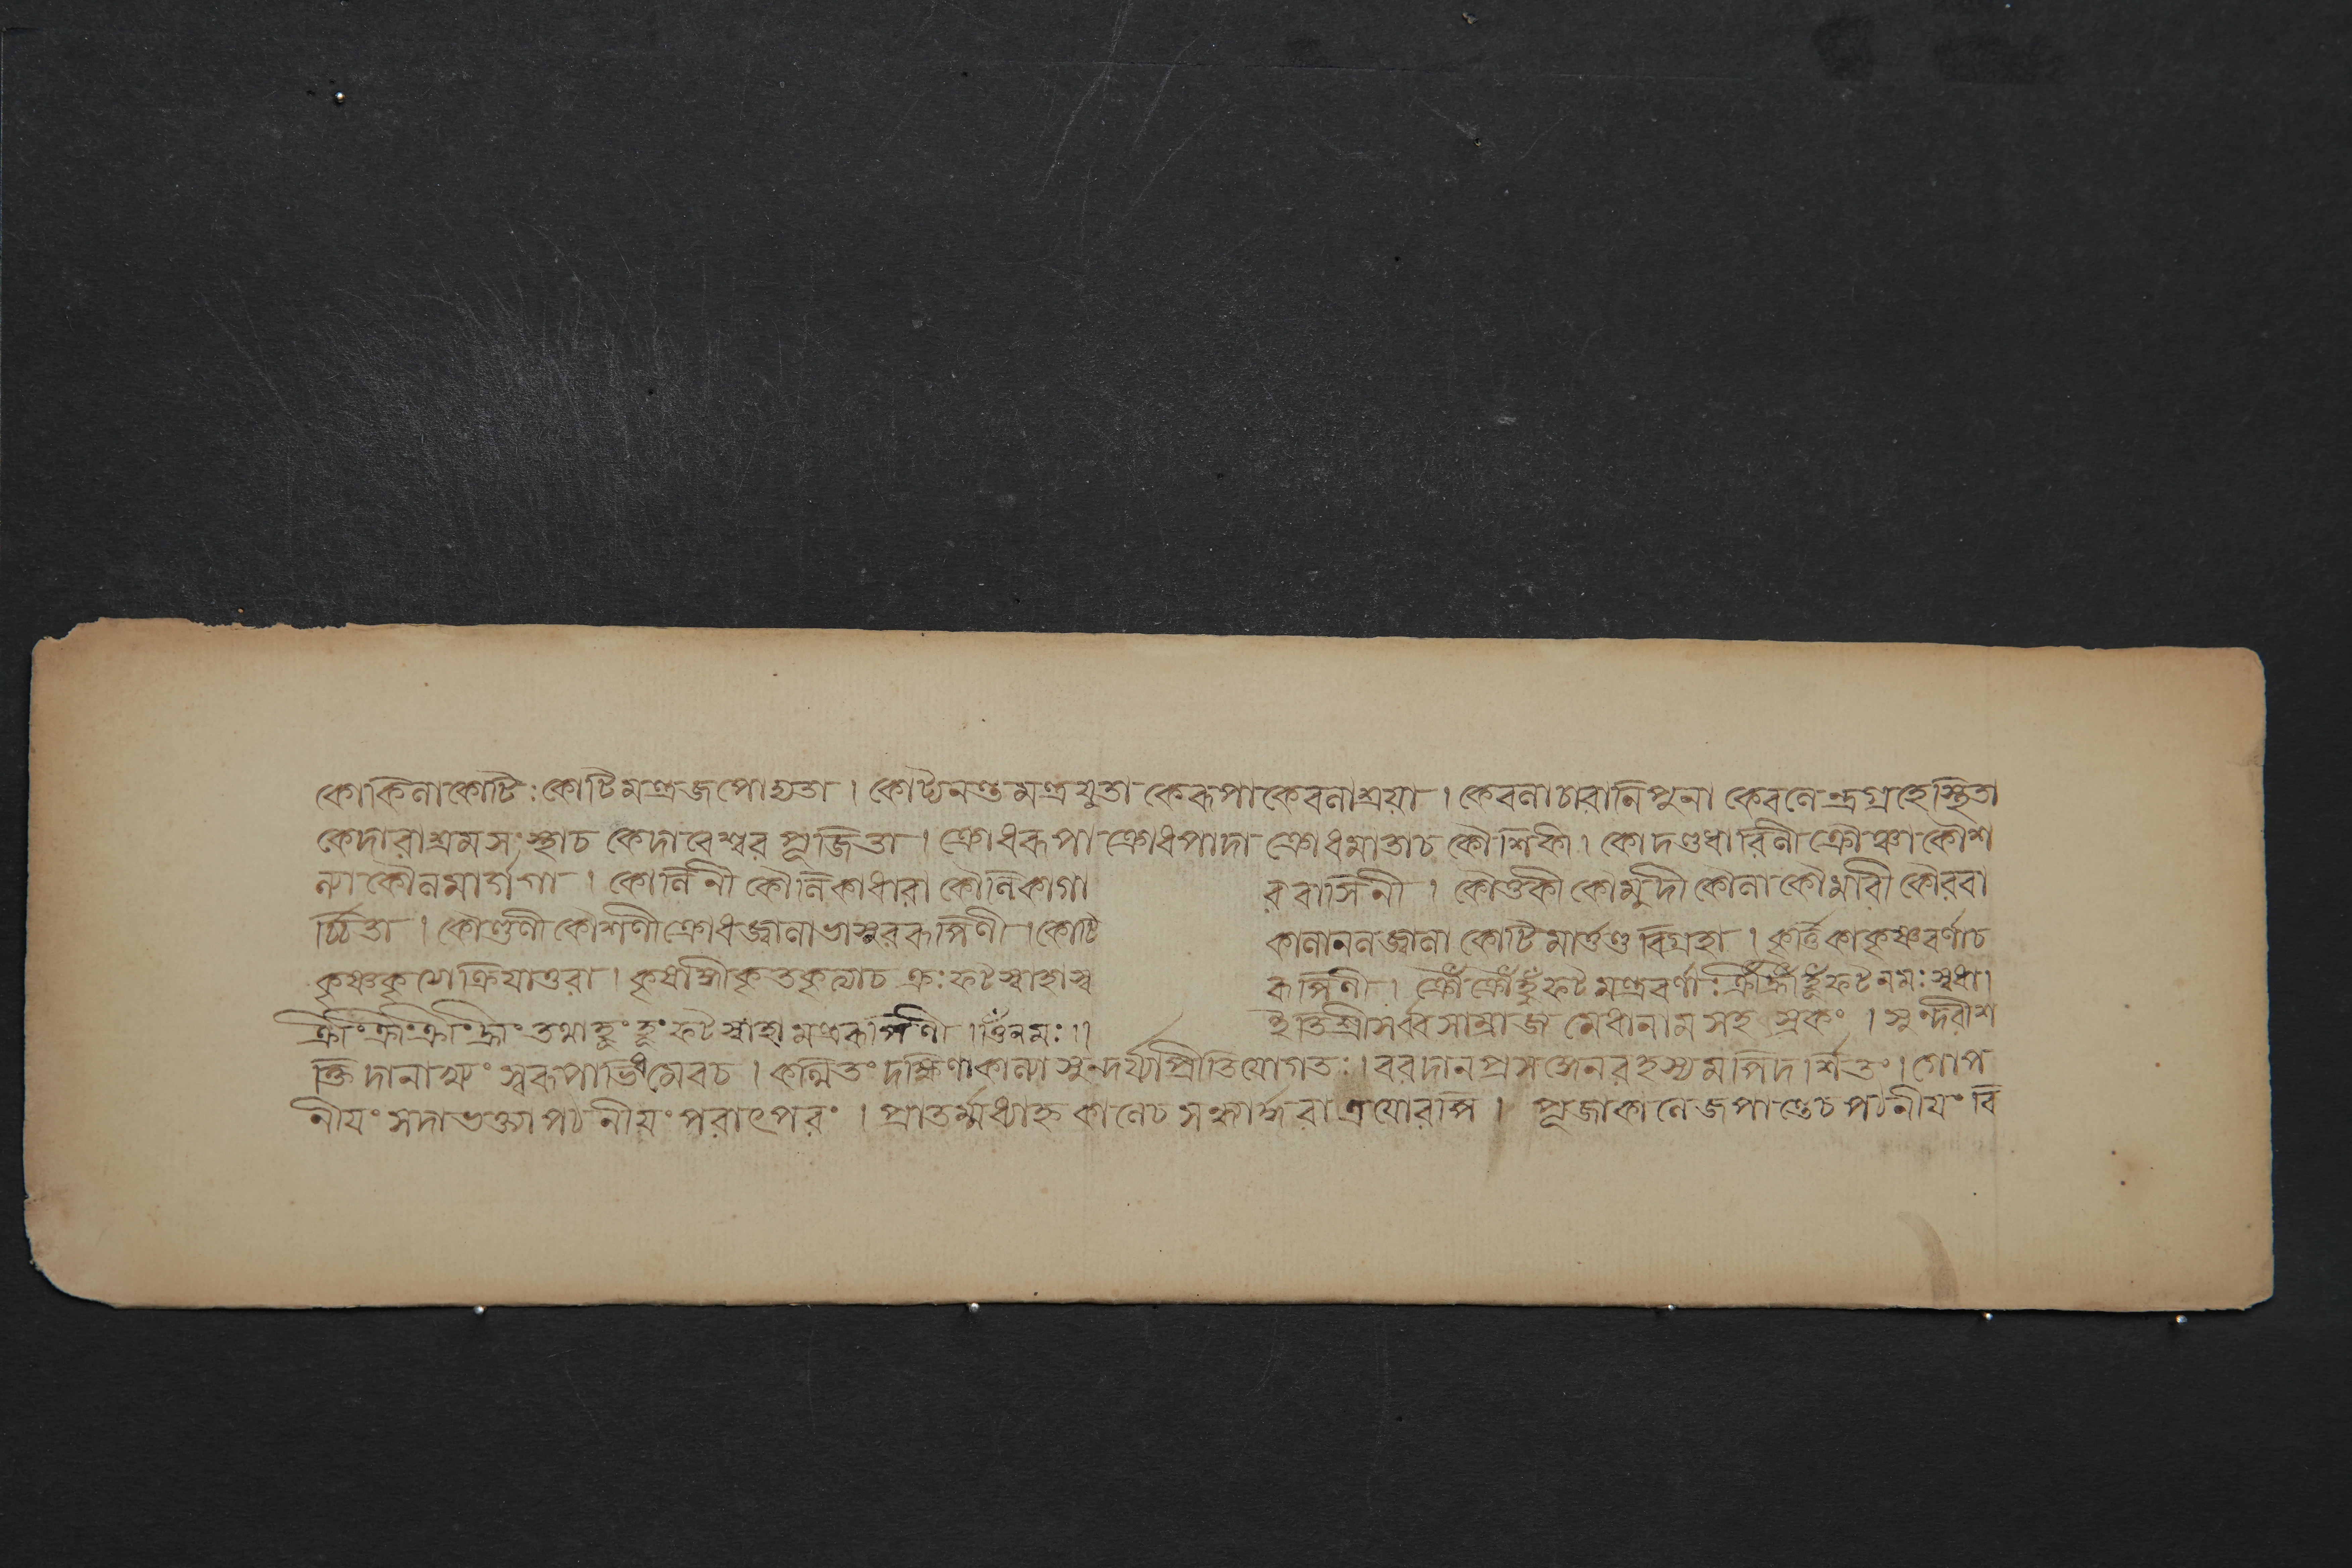 কোকিলাকোটিঃকোটিমন্ত্রজপোদ্যতা । কোট্যনন্তমন্ত্রযুতা কেরূপাকেবলাশ্রয়া । কেবলাচারানিপুনা কেবলেন্দ্রগ্রহেস্থিতা
কেদারাশ্রমসংস্থাচ কেদারেশ্বরপূজিতা । ক্রোধরূপা ক্রোধপাদা ক্রোধমাতাচ কৌশিকী । কোদণ্ডধারিনী ক্রৌঞ্চা কৌশ
ল্যা কৌলমার্গগা । কৌলিনী কৌলিকাধারা কৌলিকাগা রবাসিনী । কৌতুকী কৌমুদী কৌলা কৌমারী কৌরবা
র্চ্চিতা । কৌণ্ডিণী কৌশলী ক্রোধজ্বালাভাসুররূপিণী । কোটি কালানলজ্বালা কোটিমার্ত্তণ্ডবিগ্রহা । কৃর্ত্তিকাকৃষ্ণবর্ণাচ
কৃষ্ণকৃত্যে ক্রিয়াতুরা । কৃষাঙ্গীকৃতকৃত্যাচ ক্রঃফট্‌স্বাহাস্ব রূপিণী । ক্রৌঁ ক্রৌঁ হুঁ ফট্‌মন্ত্রবর্ণা ক্রীঁ হ্রীঁ হুঁ ফট্‌নমঃস্বধা ।
ক্রীংক্রীংক্রীংহ্রীং তথাহুংহূং ফট্‌স্বাহামন্ত্ররূপিণী । ওঁনমঃ ।। ইতি শ্রীসর্ব্বসাম্রাজ মেধানামসহস্রকং । সুন্দরীশ
ক্তিদানাখ্যং স্বরূপাভিধমেবচ । কথিতং দক্ষিণাকাল্যা সুন্দর্য্যৈপ্রীতিযোগতঃ । বরদানপ্রসঙ্গেনরহস্যমপিদর্শিতং । গোপ
নীয়ংসদাভক্ত্যাপঠনীয়ংপরাৎপরং । প্রাতর্ম্মধ্যাহ্নকালেচ সন্ধ্যার্দ্ধরাত্রয়োরপি । পূজাকালেজপান্তেচ পঠনীয়ংবি